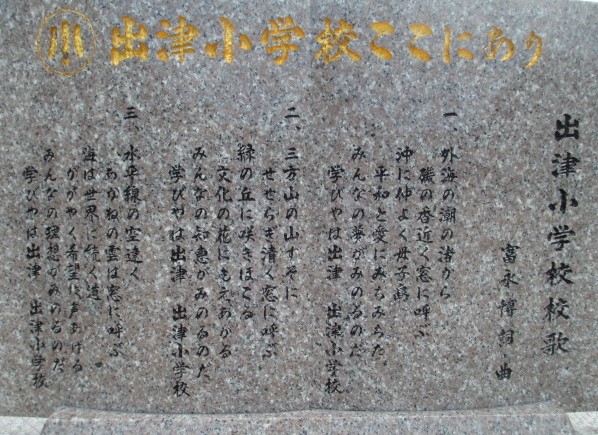 小 出津小学校ここにあり
出津小学校校歌
富永博 詞・曲
一、外海の潮の渚から
磯の香近く窓に呼ぶ
沖に仲よく母子島
平和と愛にみちみちた
みんなの夢がみのるのだ
学びやは出津 出津小学校
二、三方山の山すそに
せせらぎ清く窓に呼ぶ
緑の丘に咲きほこる
文化の花にもえあがる
みんなの知恵がみのるのだ
学びやは出津 出津小学校
三、水平線の空遠く
あかねの雲は窓に呼ぶ
海は世界に続く道
かがやく希望に声あげる
みんなの理想がみのるのだ
学びやは出津 出津小学校